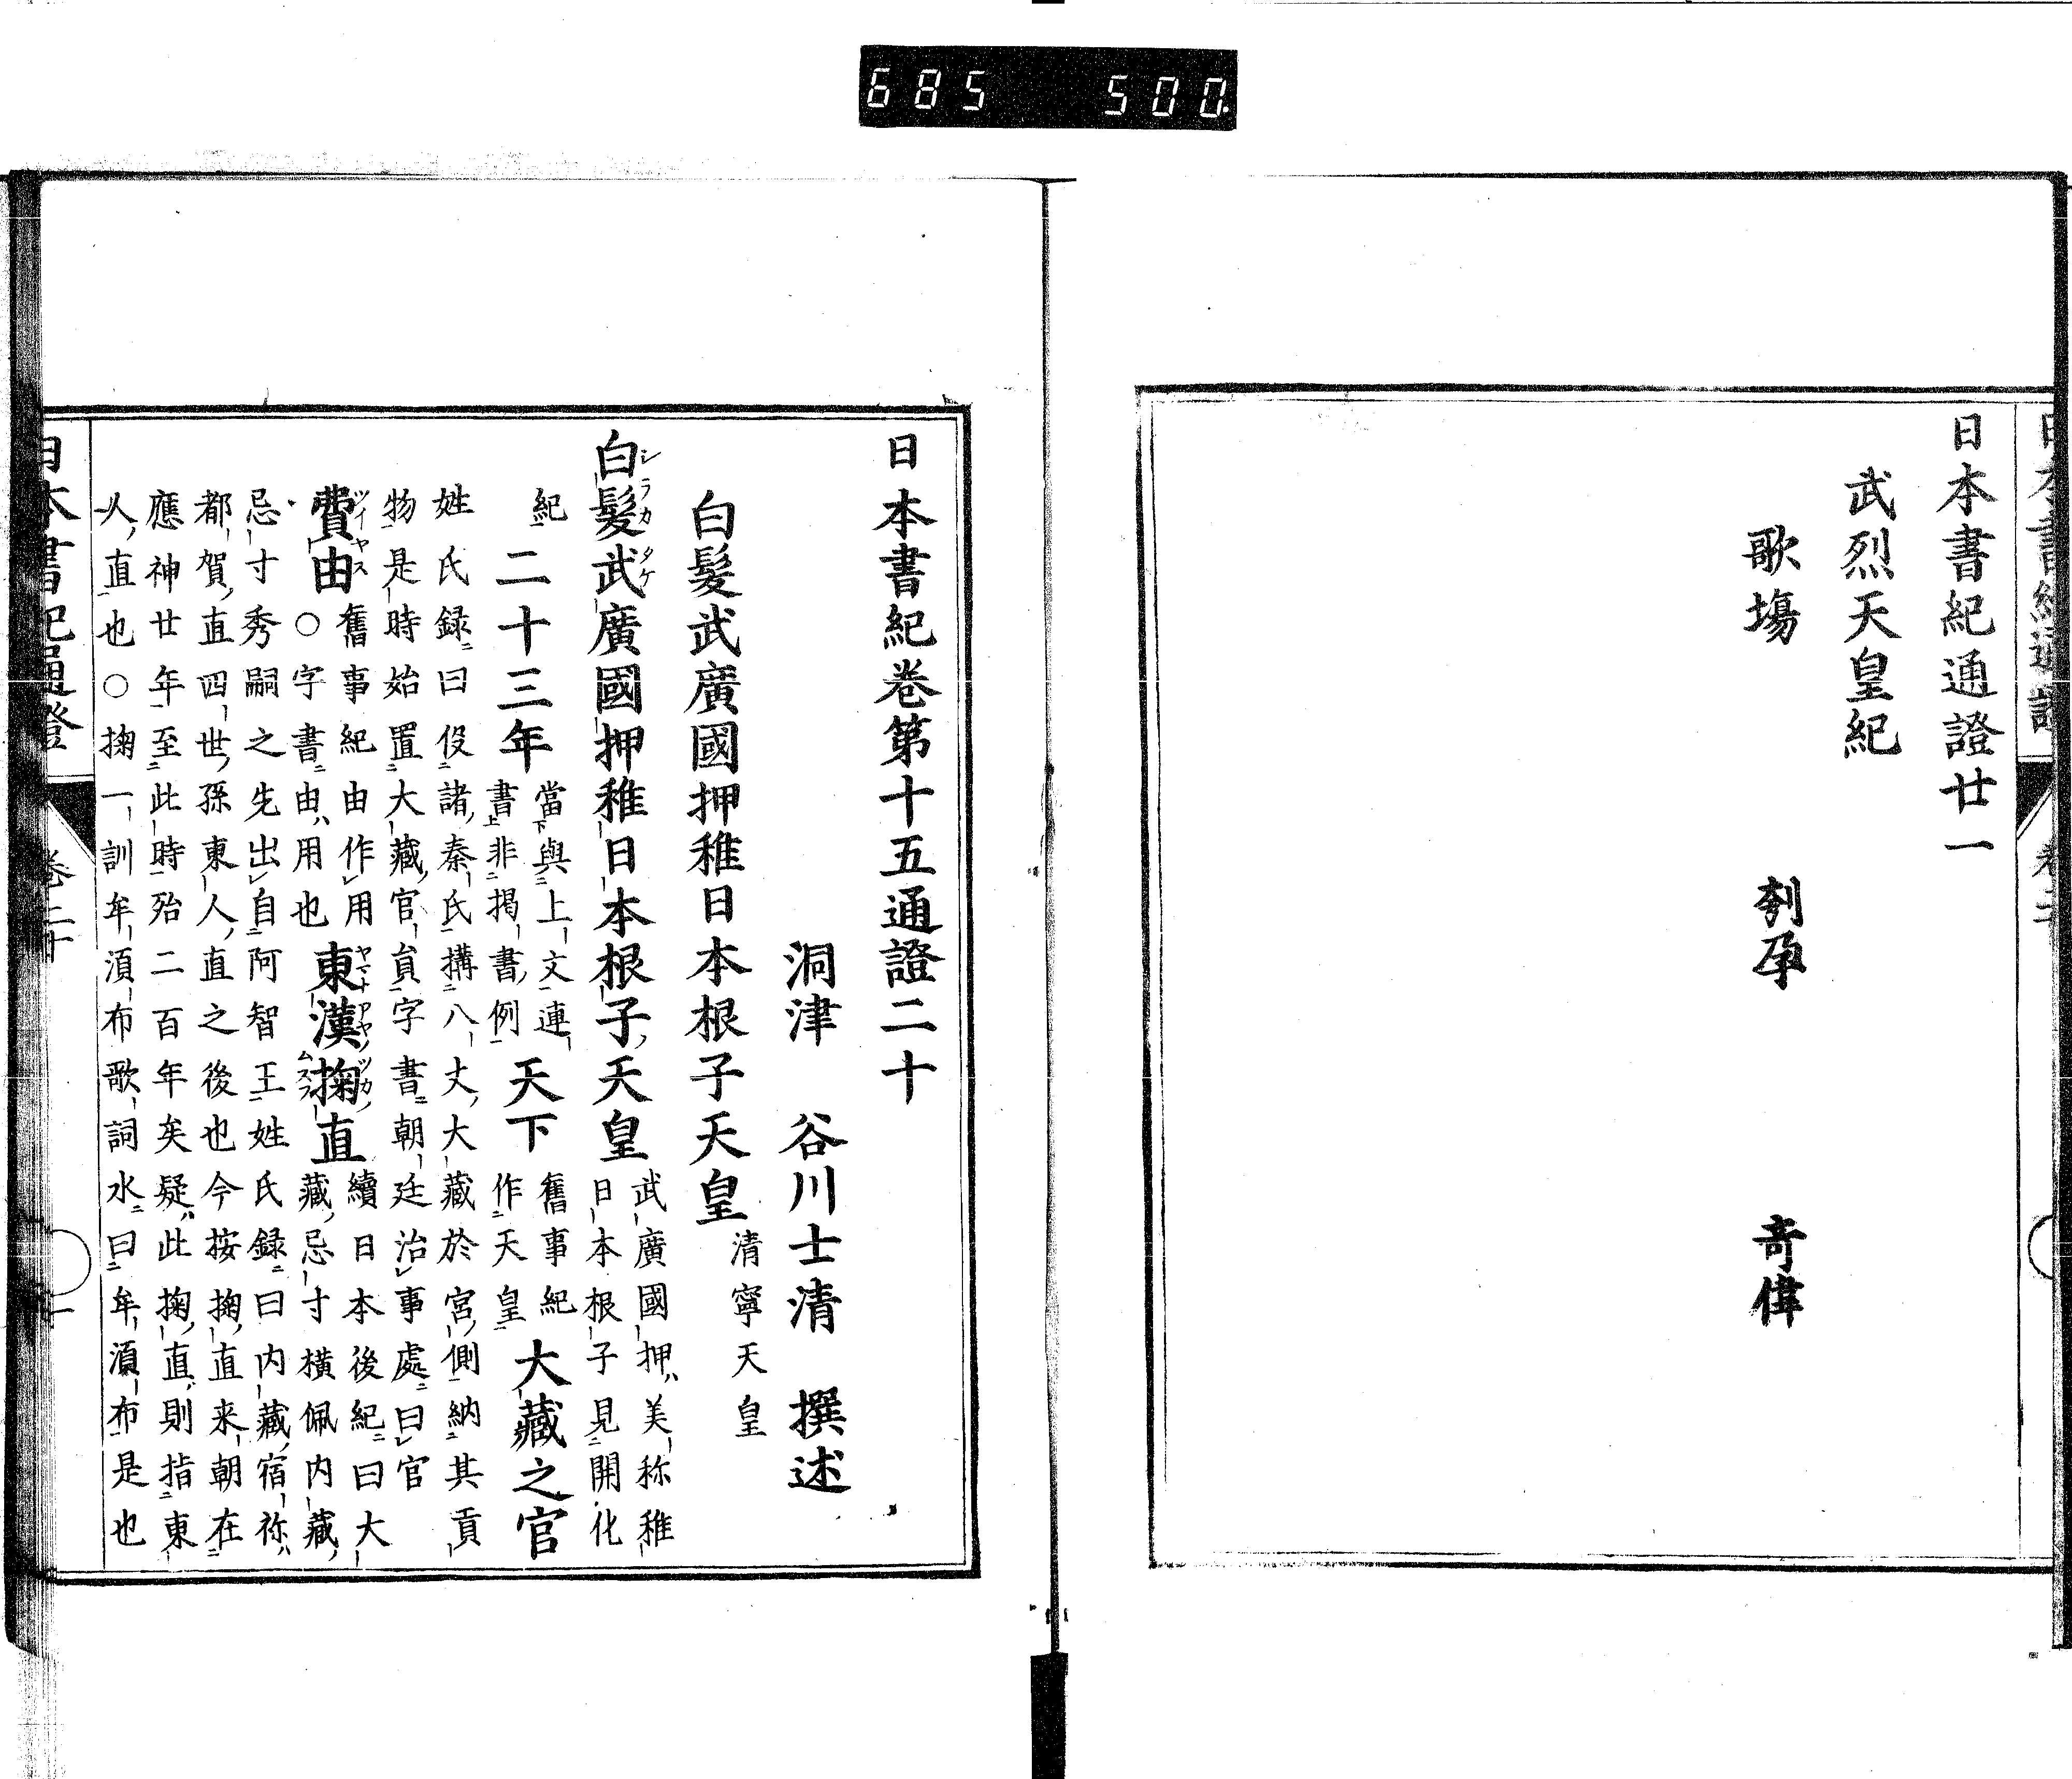 685 500
日本書紀通證廿一
武烈天皇紀
歌場 刳孕 奇偉
日本書紀卷第十五通證二十
洞津 谷川士清 撰述
白髮武廣國押稚日本根子天皇 清寧天皇
白髮武廣國押稚日本根子天皇 武廣國押美称稚日本根子見開化
シラカタケ
紀 二十三年 當與上文連書非揭書例 天下 舊事紀作天皇 大藏之官
姓氏録曰役諸秦氏搆八丈大藏於宮側納其貢
物是時始置大藏官員字書朝廷治事處曰官
費由 舊事紀由作用○字書由用也 東漢掬直 續日本後紀曰大藏忌寸横佩内藏
ツイヤス ヤマトアヤノツカ ムスフ
忌寸秀嗣之先出自阿智王姓氏録曰内藏宿祢
都賀直四世孫東人直之後也今按掬直来朝在
應神廿年至此時殆二百年矣疑此掬直則指東
人直也○掬一訓牟湏布歌詞水曰牟湏布是也
日本書紀通證 卷二十